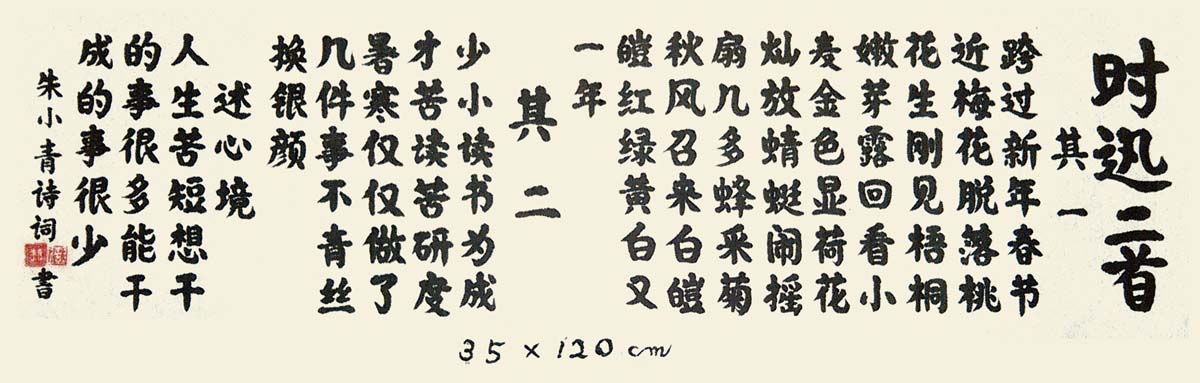 时迅二首
其一
跨过新年春节
近梅花脱落桃
花生刚见梧桐
嫩芽露回看小
麦金色显荷花
灿放蜻蜓闹摇
扇几多蜂采菊
秋风召来白皑
皑红绿黄白又
一年
其二
少小读书为成
才苦读苦研度
暑寒仅仅做了
几件事不青丝
换银颜
述心境
人生苦短想干
的事很多能干
成的事很少
朱小青诗词书
35×120cm